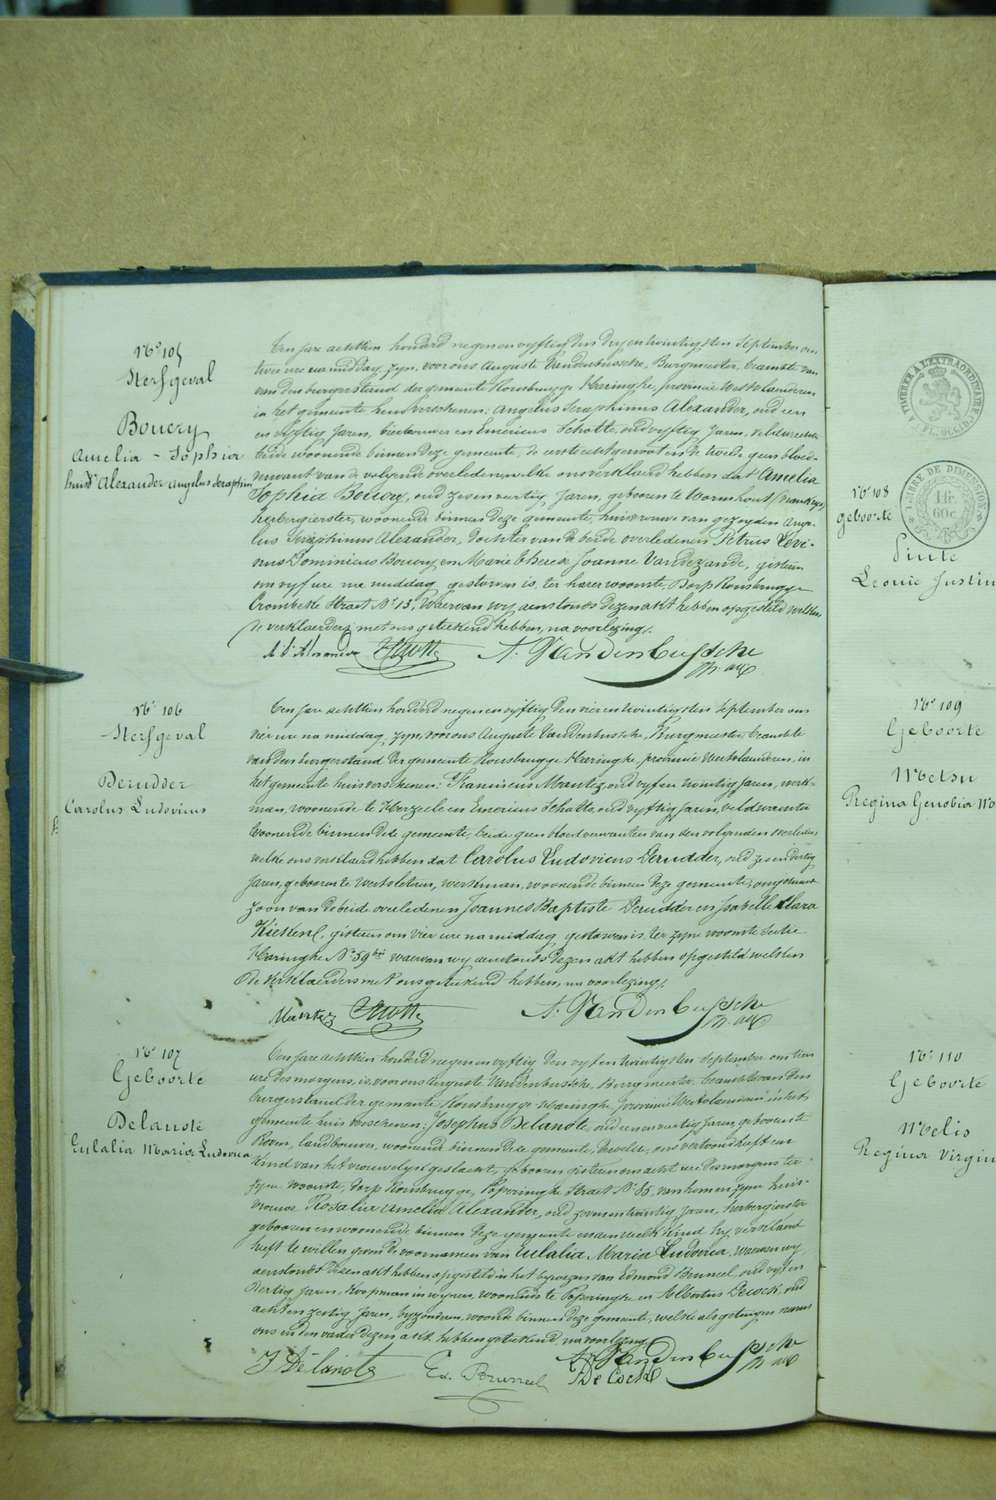 N° 105
Sterfgeval
Boucry
Amelia - Sophia
huisv. Alexander Angelus Seraphin
Ten jare achttien honderd negen en vyftig den dryentwintigsten September om
twee ure na middag, zyn, voor ons Auguste Vandenbussche, Burgmeester, beambte van
van den burgerstand der gemeente Rousbrugge Haringhe, provincie Westvlanderen
in het gemeente huis verschenen: Angelus Seraphinus Alexander, oud een
en vyftig Jaren, bierbrouwer en Emericus Schotte, oud vyftig Jaren, veldwachter
beide woonende binnen deze gemeente, de eerste echtgenoot en de tweede geen bloed-
verwant van de volgende overledene, welke ons verklaard hebben dat Amelia
Sophia Boucry, oud zeven veertig Jaren, geboren te Wormhout (Frankryk)
herbergierster, woonende binnen deze gemeente, huisvrouwe van gezeyden Ange-
lus Seraphinus Alexander, dochter van de beide overledenen Petrus Levi-
nus Dominicus Boucry en Marie Therese Joanne Vandezande, gisteren
om vyf ure na middag, gestorven is, ter harer woonste, Dorp Rousbrugge
Crombeke Straet N° 15, Waervan wy aenstonds dezen akt hebben opgesteld welken
de verklaerders met ons geteekend hebben, na voorlezing.
A S Alexander Schotte A. Vandenbussche
N° 106
Sterfgeval
Derudder
Carolus Ludovicus
Ten jare achttien honderd negen en vyftig den vierentwintigsten September om
vier ure na middag, zyn, voor ons Auguste Vandenbussche, Burgmeester, beambte
van den burgerstand der gemeente Rousbrugge Haringhe, provincie Westvlanderen, in
het gemeente huis verschenen: Franciscus Maertez, oud vyf en twintig Jaren, werk-
man, woonende te Herzeele en Emericus Schotte, oud vyftig Jaren, veldwachter
woonende binnen deze gemeente, beide geen bloedverwanten van den volgenden overleden
welke ons verklaard hebben dat Carolus Ludovicus Derudder, oud zes en dertig
Jaren, geboren te Westvleteren, werkman, woonende binnen deze gemeente, ongehuwd
zoon van de beide overledenen Joannes Baptiste Derudder en Isabelle Clara
Kiekens, gisteren om vier ure na middag, gestorven is, ter zyner woonste Sectie
Haringhe N° 59 waervan wy aenstonds dezen akt hebben opgesteld welken
de verklaerders met ons geteekend hebben, na voorlezing.
Maertez Schotte A. Vandenbussche
N° 107
Geboorte
Delanote
Eulalia Maria Ludovica
Ten jare achttien honderd negen en vyftig den vyfentwintigsten September om tien
ure des morgens, is, voor ons Auguste Vandenbussche, Burgmeester, beambte van den
burgerstand der gemeente Rousbrugge-Haringhe, provincie Westvlanderen in het
gemeente huis verschenen: Josephus Delanote, oud een en veertig Jaren, geboren te
landbouwer, woonende binnen deze gemeente, dewelke, ons vertoond heeft een
Kind van het vrouwelyk geslacht, geboren gisteren om acht ure des morgens te
zyner woonste, dorp Rousbrugge, Poperinghe Straet N° 85, van hem en zyne huis-
vrouwe Rosalia Amelia Alexander, oud zevenentwintig Jaren, herbergierster
geboren en woonende binnen deze gemeente en aen welk kind hy verklaerd
heeft te willen geven de voornamen van Eulalia, Maria Ludovica, waervan wy
aenstonds dezen akt hebben opgesteld in het bywezen van Edmond Bruneel, oud vyf en
dertig Jaren, koopman in wynen, woonende te Poperinghe en Albertus Decock, oud
acht en zestig Jaren, byzonderen, woonende binnen deze gemeente, welke als getuigen nevens
ons en den vader dezen akt hebben geteekend, na voorlezing.
J Delanote Ed. Bruneel De Cock A. Vandenbussche
A TIMBRER A L'EXTRAORDINAIRE
FL. OCCID.
TIMBRE DE DIMENSION
1 fr.
60 c.
N° 108
Geboorte
Pinte
Leonie Justin
N° 109
Geboorte
Metsu
Regina Genobia Ma
N° 110
Geboorte
Melis
Regina Virgin